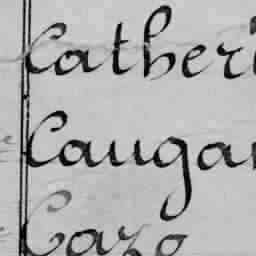 Catheri
Caugar
Cazo